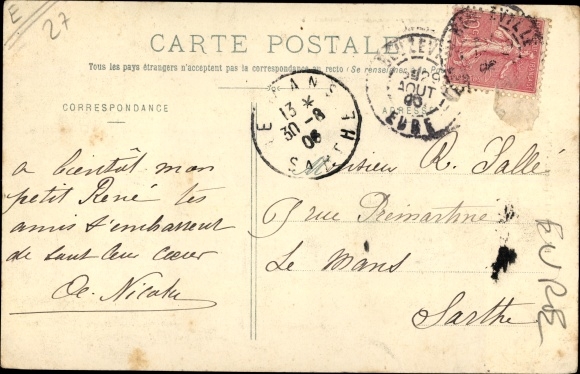 E
27
CARTE POSTALE
Tous les pays étrangers n'acceptent pas la correspondance au recto (Se renseigner
CORRESPONDANCE
ADRESSE
29
AOUT
06
EURE
LE MANS
13 *
30-8
06
SARTHE
a bientôt mon
petit René tes
amis t'embrassent
de tout leur cœur
Monsieur R. Sallé
7 rue Prémartine
Le Mans
Sarthe
EURE